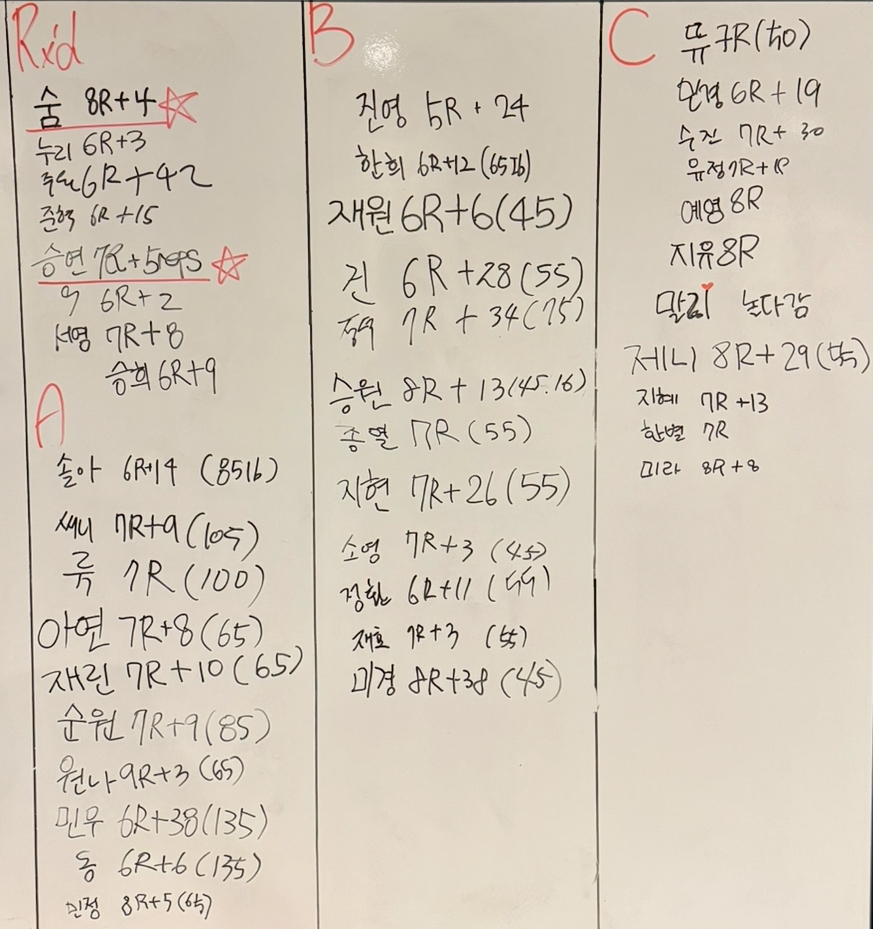 Rx'd
숨 8R+4
누리 6R+3
6R+42
준혁 6R+15
승연 7R+5reps
욱 6R+2
서영 7R+8
승희 6R+9
A
솔아 6R+14 (85lb)
써니 7R+9 (105)
륙 7R (100)
아연 7R+8 (65)
재린 7R+10 (65)
순원 7R+9 (85)
원나 9R+3 (65)
민우 6R+38 (135)
동 6R+6 (135)
민정 8R+5 (65)
B
진영 5R + 24
한희 6R+12 (65lb)
재원 6R+6 (45)
건 6R+28 (55)
7R + 34 (75)
승원 8R + 13 (45.lb)
종열 7R (55)
지현 7R+26 (55)
소영 7R+3 (45)
정환 6R+11 (55)
재효 7R+3 (55)
미경 8R+38 (45)
C
뮤 7R (50)
민경 6R + 19
수진 7R+ 30
유정 7R+18
예영 8R
지유 8R
말리 논다감
제니 8R+29 (55)
지혜 7R +13
한별 7R
미라 8R+8